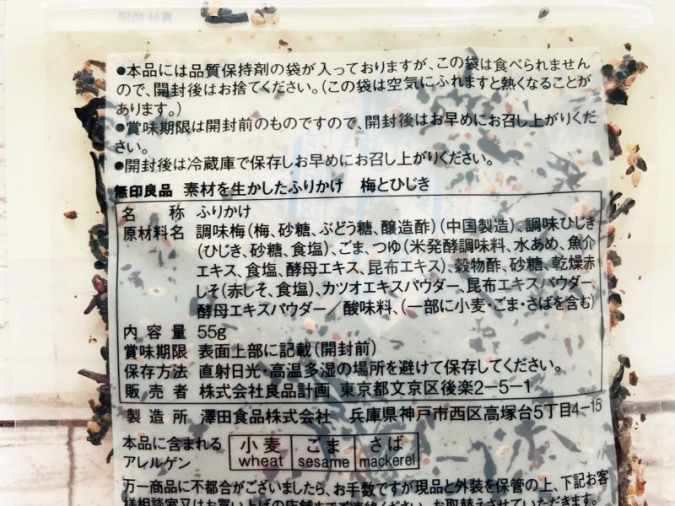 ●本品には品質保持剤の袋が入っておりますが、この袋は食べられません
ので、開封後はお捨てください。(この袋は空気にふれますと熱くなることが
あります。)
●賞味期限は開封前のものですので、開封後はお早めにお召し上がりくだ
さい。
●開封後は冷蔵庫で保存しお早めにお召し上がりください。
無印良品 素材を生かしたふりかけ 梅とひじき
名称 ふりかけ
原材料名 調味梅(梅、砂糖、ぶどう糖、醸造酢)(中国製造)、調味ひじき
(ひじき、砂糖、食塩)、ごま、つゆ(米発酵調味料、水あめ、魚介
エキス、食塩、酵母エキス、昆布エキス)、穀物酢、砂糖、乾燥赤
しそ(赤しそ、食塩)、カツオエキスパウダー、昆布エキスパウダー、
酵母エキスパウダー/酸味料、(一部に小麦・ごま・さばを含む)
内容量 55g
賞味期限 表面上部に記載(開封前)
保存方法 直射日光・高温多湿の場所を避けて保存してください。
販売者 株式会社良品計画 東京都文京区後楽2-5-1
製造所 澤田食品株式会社 兵庫県神戸市西区高塚台5丁目4-15
本品に含まれる 小麦 ごま さば
アレルゲン wheat sesame mackerel
万一商品に不都合がございましたら、お手数ですが現品と外装を保管の上、下記お客
様相談室又はお買い上げの店舗までご連絡ください。お取替えさせていただきます。